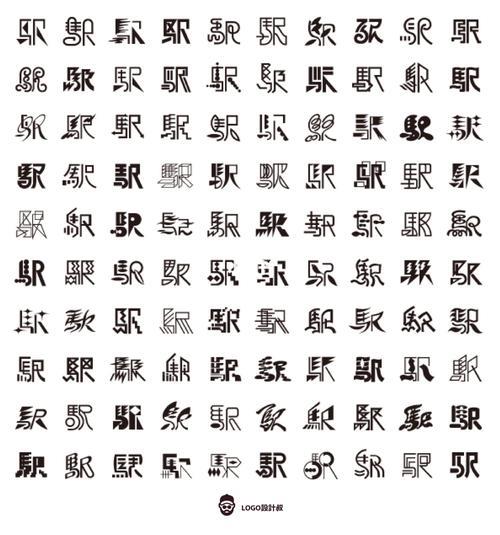 駅 駅 駅 駅 駅 駅 駅 駅 駅 駅
駅 駅 駅 駅 駅 駅 駅 駅 駅 駅
駅 駅 駅 駅 駅 駅 駅 駅 駅 駅
駅 駅 駅 駅 駅 駅 駅 駅 駅 駅
駅 駅 駅 駅 駅 駅 駅 駅 駅 駅
駅 駅 駅 駅 駅 駅 駅 駅 駅 駅
駅 駅 駅 駅 駅 駅 駅 駅 駅 駅
駅 駅 駅 駅 駅 駅 駅 駅 駅 駅
駅 駅 駅 駅 駅 駅 駅 駅 駅 駅
駅 駅 駅 駅 駅 駅 駅 駅 駅 駅
LOGO設計叔